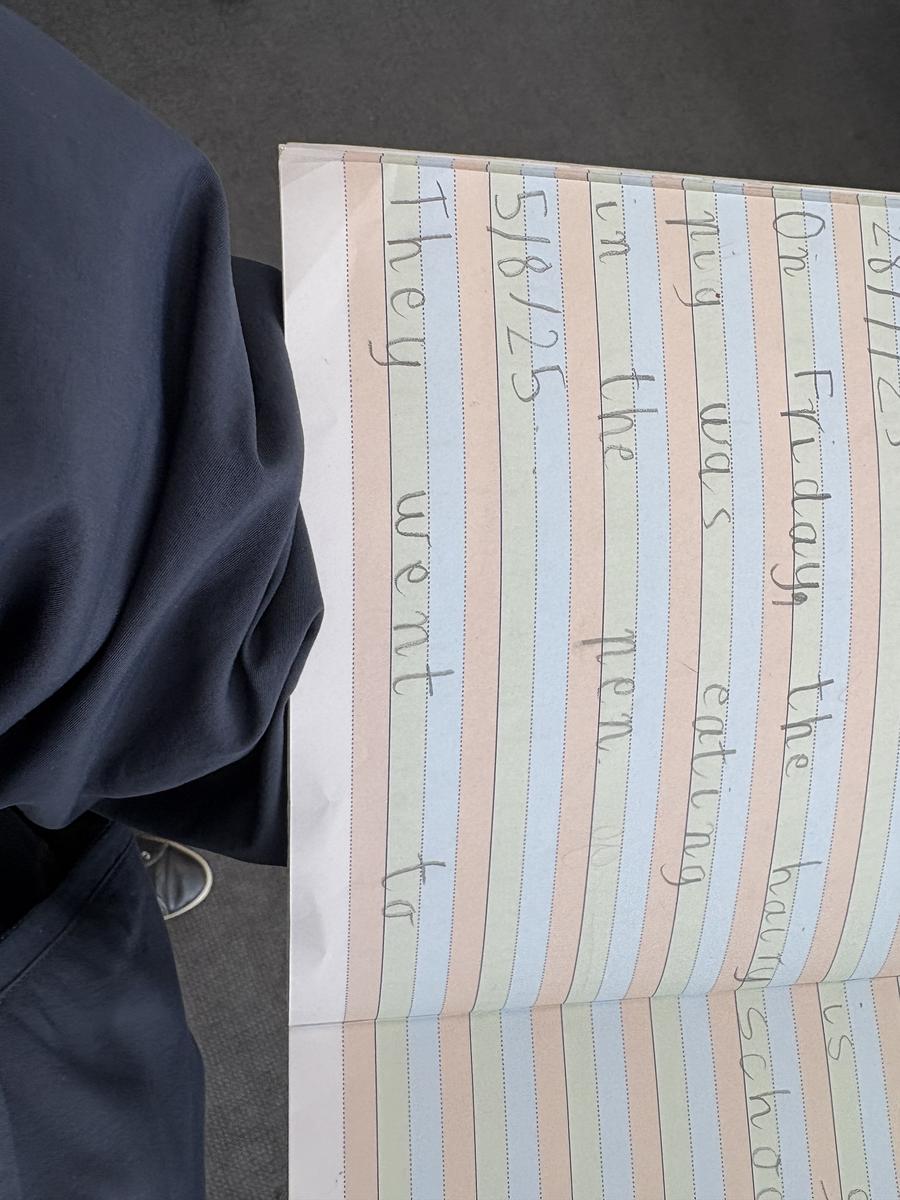 On Friday, the hairy
pig was eating
in the pen.
5/8/25
They went to
is